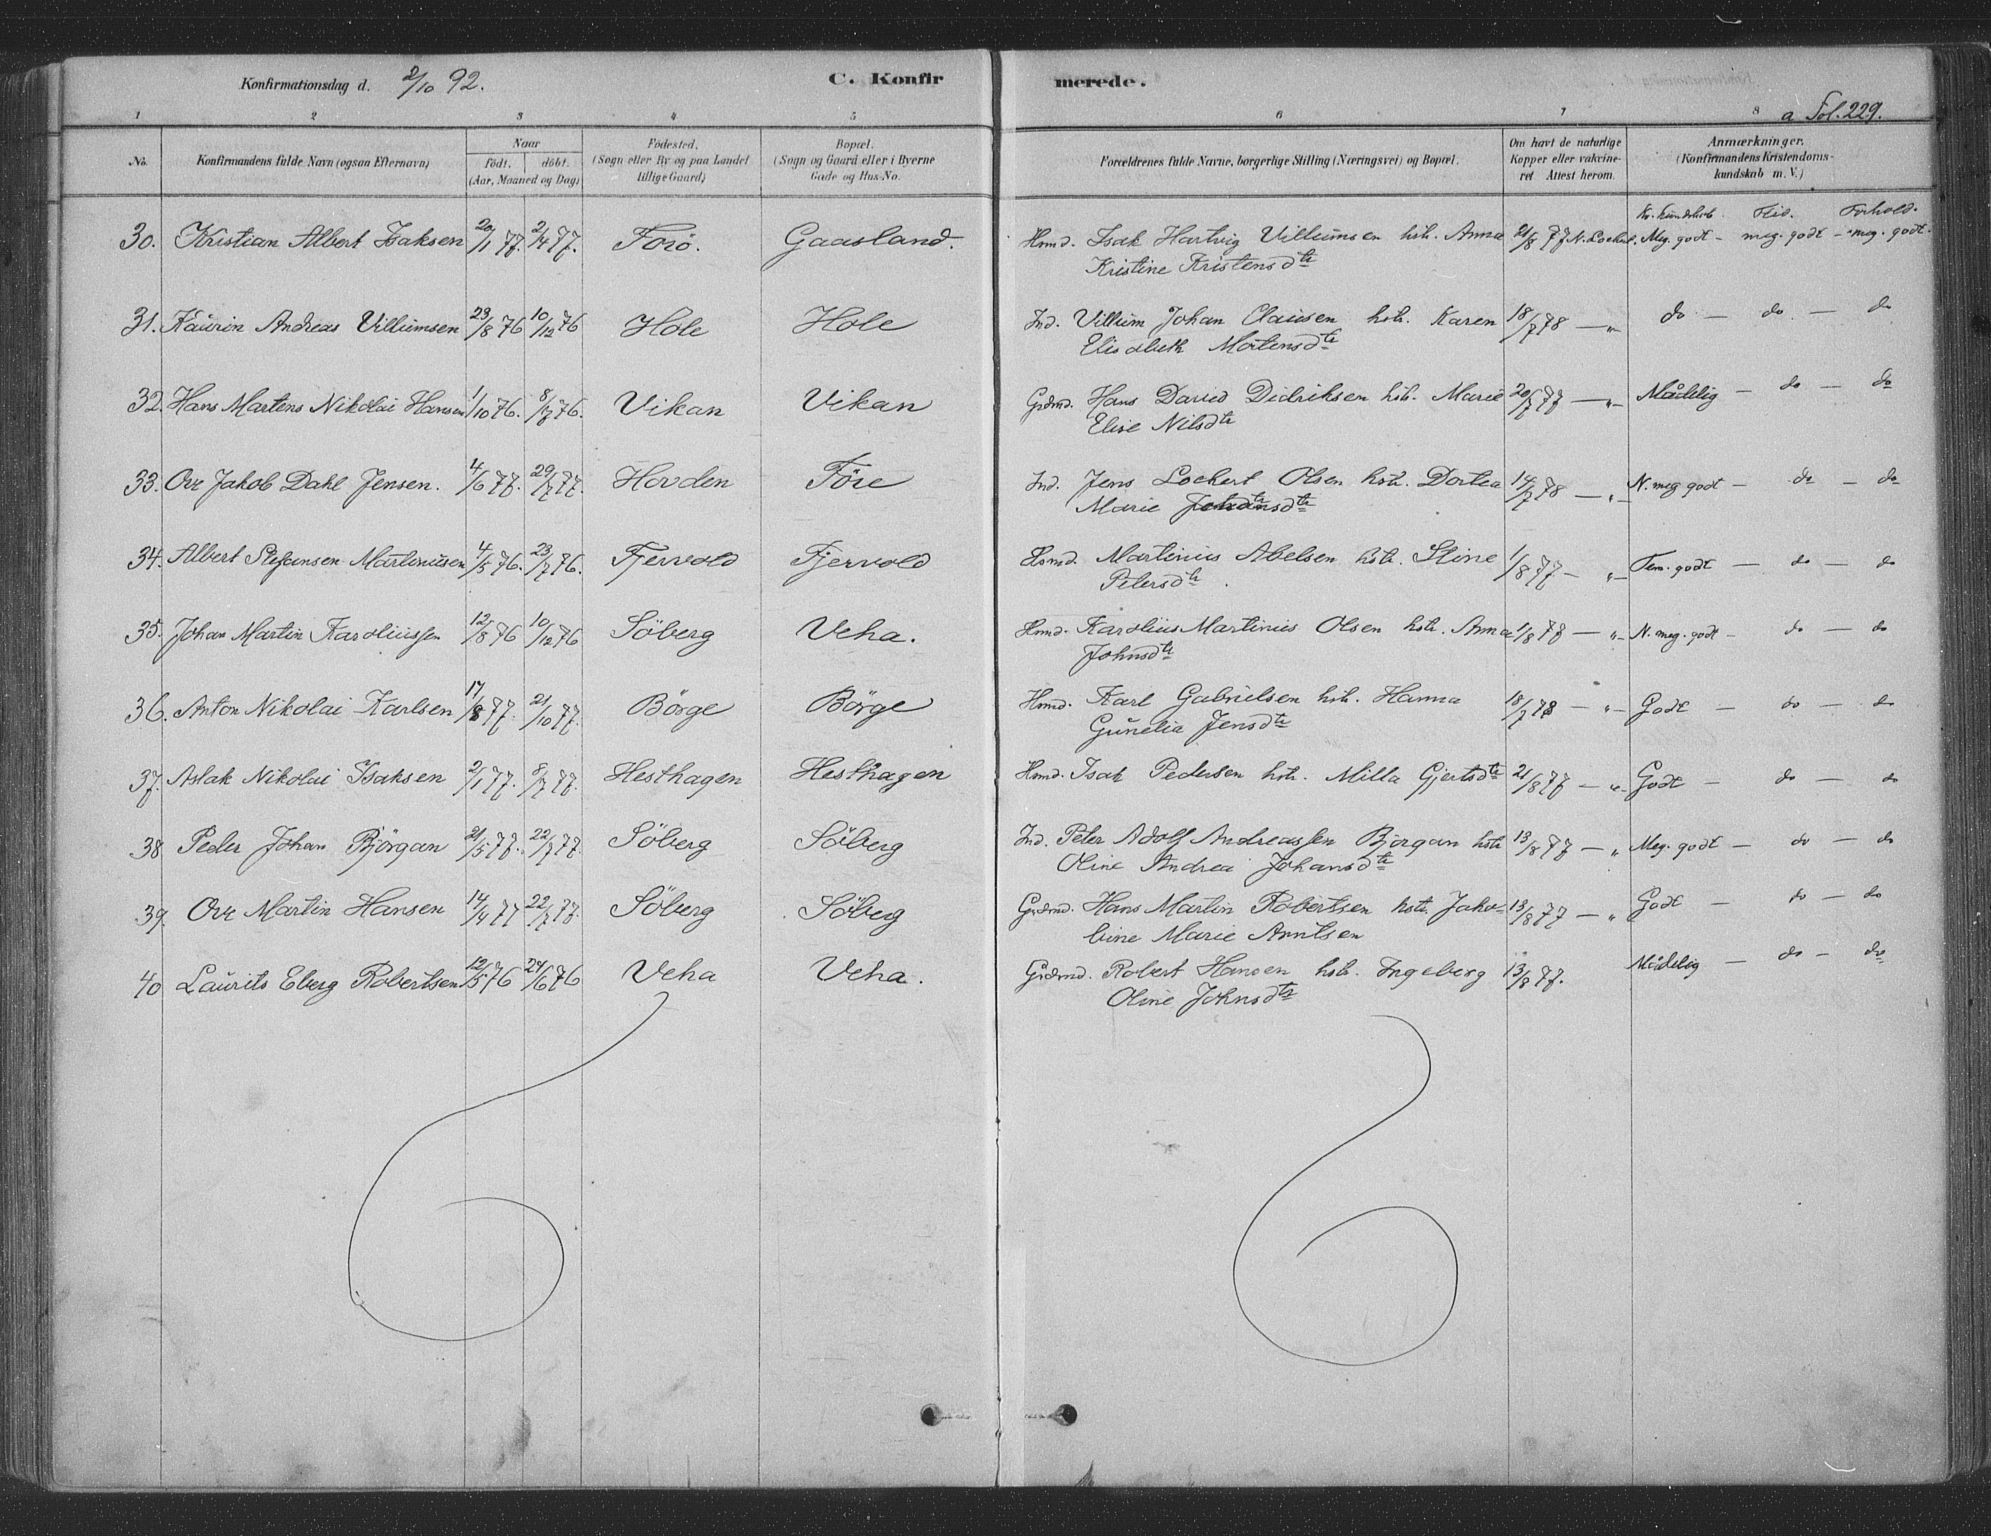 Konfirmationsdag d. 2/10 92. C. Konfirmerede.
a Fol. 229.
1 2 3 4 5 6 7 8
No. Konfirmandens fulde Navn (ogsaa Efternavn) Naar født. døbt. (Aar, Maaned og Dag) Fødested, (Sogn eller By og paa Landet tillige Gaard) Bopæl. (Sogn og Gaard eller i Byerne Gade og Hus-No. Forældrenes fulde Navne, borgerlige Stilling (Næringsvei) og Bopæl. Om havt de naturlige Kopper eller vakcineret Attest herom. Anmærkninger. (Konfirmandens Kristendomskundskab m. V.)
Kr. kundskab. Flid. Forhold.
30. Kristian Albert Isaksen 20/1 77. 2/4 77. Forö. Gaasland. Hmd. Isak Hartvig Villumsen hstr. Anna 21/8 77 N. Lockert. Meg. godt – meg. godt – meg. godt.
Kristine Kristensdtr
31. Kaurin Andreas Villumsen 23/8 76 10/12 76 Hole Hole Ind. Villum Johan Clausen hstr. Karen 18/7 78 — "– do — do — do
Elisabeth Mortensdtr
32. Hans Martens Nikolai Hansen 1/10 76. 8/7 76. Vikan Vikan Grdmd. Hans David Didriksen hstr. Marie 20/7 77 — "– Mådelig — do — do
Elise Nilsdtr
33. Ove Jakob Dahl Jensen. 4/6 77. 29/7 77. Hovden Före Ind. Jens Lockert Olsen hstr. Dortea 14/7 78 — "– N. meg godt — do — do
Marie
34. Albert Stefansen Martinusen 4/5 76. 23/7 76. Fjervold Fjervold Hsmd. Martinus Abelsen hstr. Stine 1/8 77 — "– Tem. godt — do — do
Petersdtr.
35. Johan Martin Karoliussen 12/8 76 10/12 76 Söberg Veha. Hmd. Karolius Martinus Olsen hstr. Anna 1/8 78 — "– N. meg. godt – do — do
Johnsdtr
36. Anton Nikolai Karlsen 17/8 77. 21/10 77. Börge Börge Hmd. Karl Gabrielsen hstr. Hanna 18/7 78 — "– Godt — do — do
Gunelia Jensdtr
37. Aslak Nikolai Isaksen 2/1 77. 8/7 77. Hesthagen Hesthagen Hmd. Isak Pedersen hstr. Milla Gjertsdtr 21/8 77 — "– Godt — do — do
38 Peder Johan Björgan 21/5 77. 22/7 77. Söberg Söberg Ind. Peter Adolf Andreassen Björgan hstr 13/8 77 — " Meg. godt — do — do
Oline Andrea Johansdtr
39. Ove Martin Hansen 14/4 77 22/7 77. Söberg Söberg Grdmd. Hans Martin Robertsen hstr. Jako- 13/8 77 — " Godt — do — do
bine Marie Arntsen
40 Laurits Eberg Robertsen 12/5 76 24/6 76 Veha Veha. Grdmd. Robert Hansen hstr. Ingeberg 13/8 77. Mådelig — do — do
Oline Johnsdtr